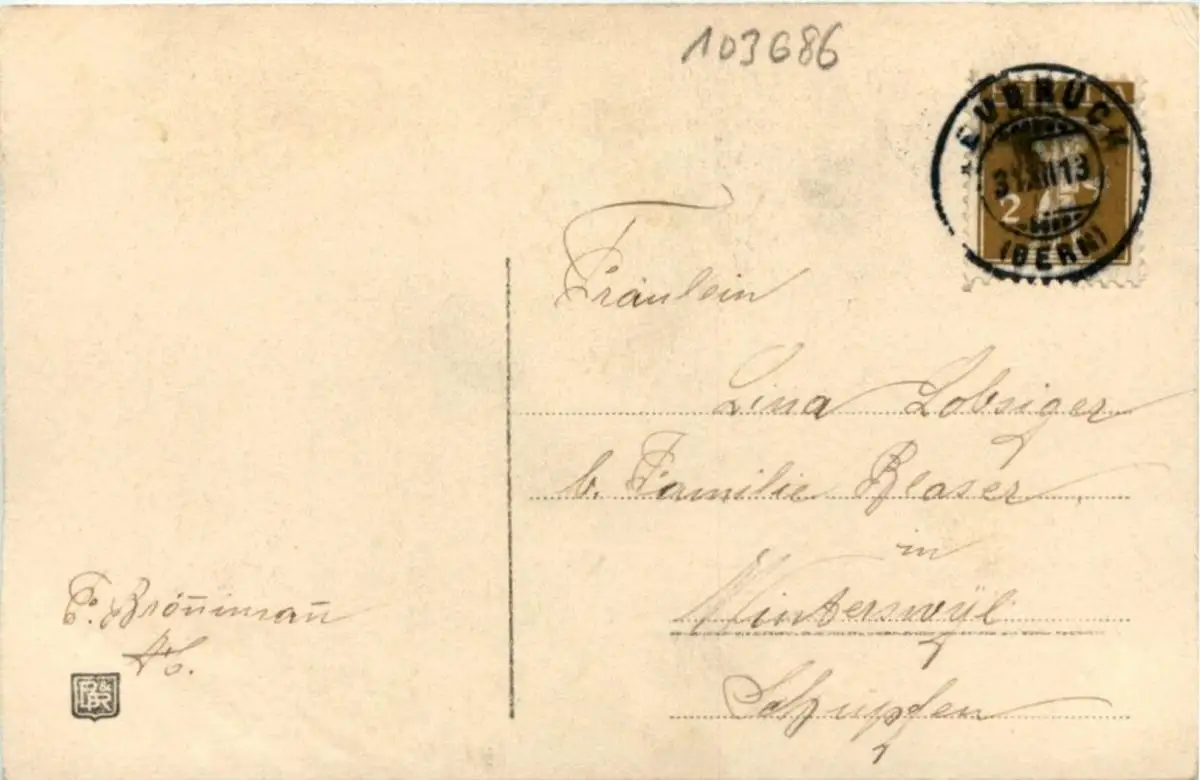 103686
NEUBRÜCK
31.XII.13
(BERN)
2
Fräulein
Lina Lobsiger
b. Familie Blaser
in
Winterswÿl
Schüpfen
F. Brön̄iman̄